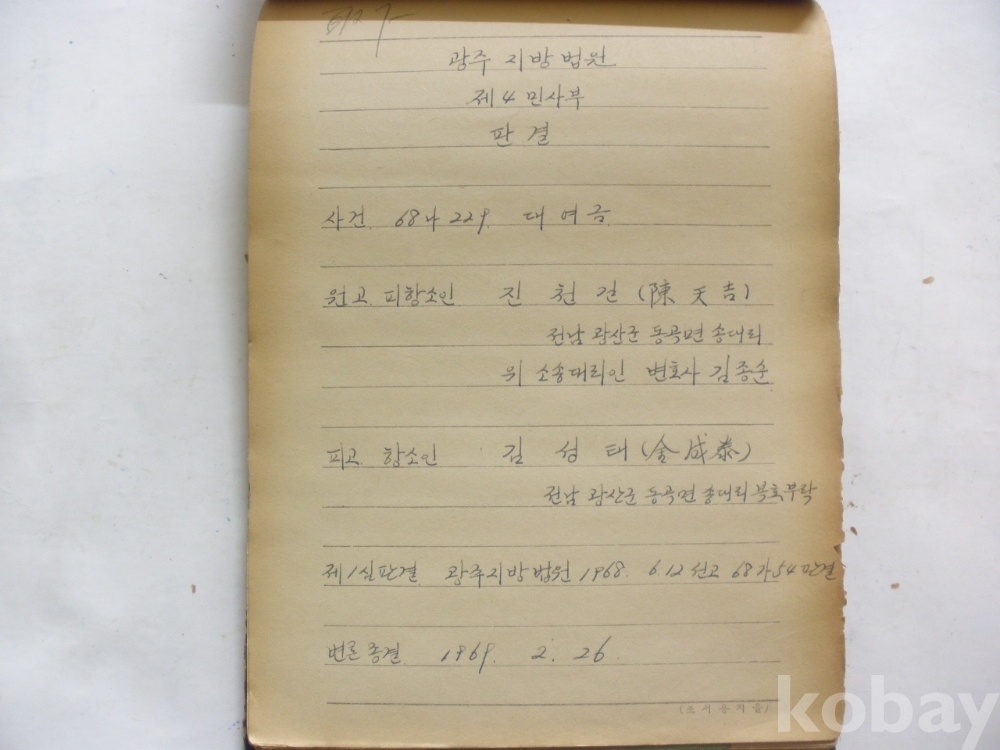 광주 지방법원
제4 민사부
판결
사건. 68나 229. 대여금.
원고. 피항소인 진천길 (陳天吉)
전남 광산군 동곡면 송대리
위 소송대리인 변호사 김종순
피고 항소인 김성태 (金成泰)
전남 광산군 동곡면 송대리 복호부락
제1심판결 광주지방법원 1968. 6.12 선고 68가54 판결
변론종결 1969. 2. 26.
kobay